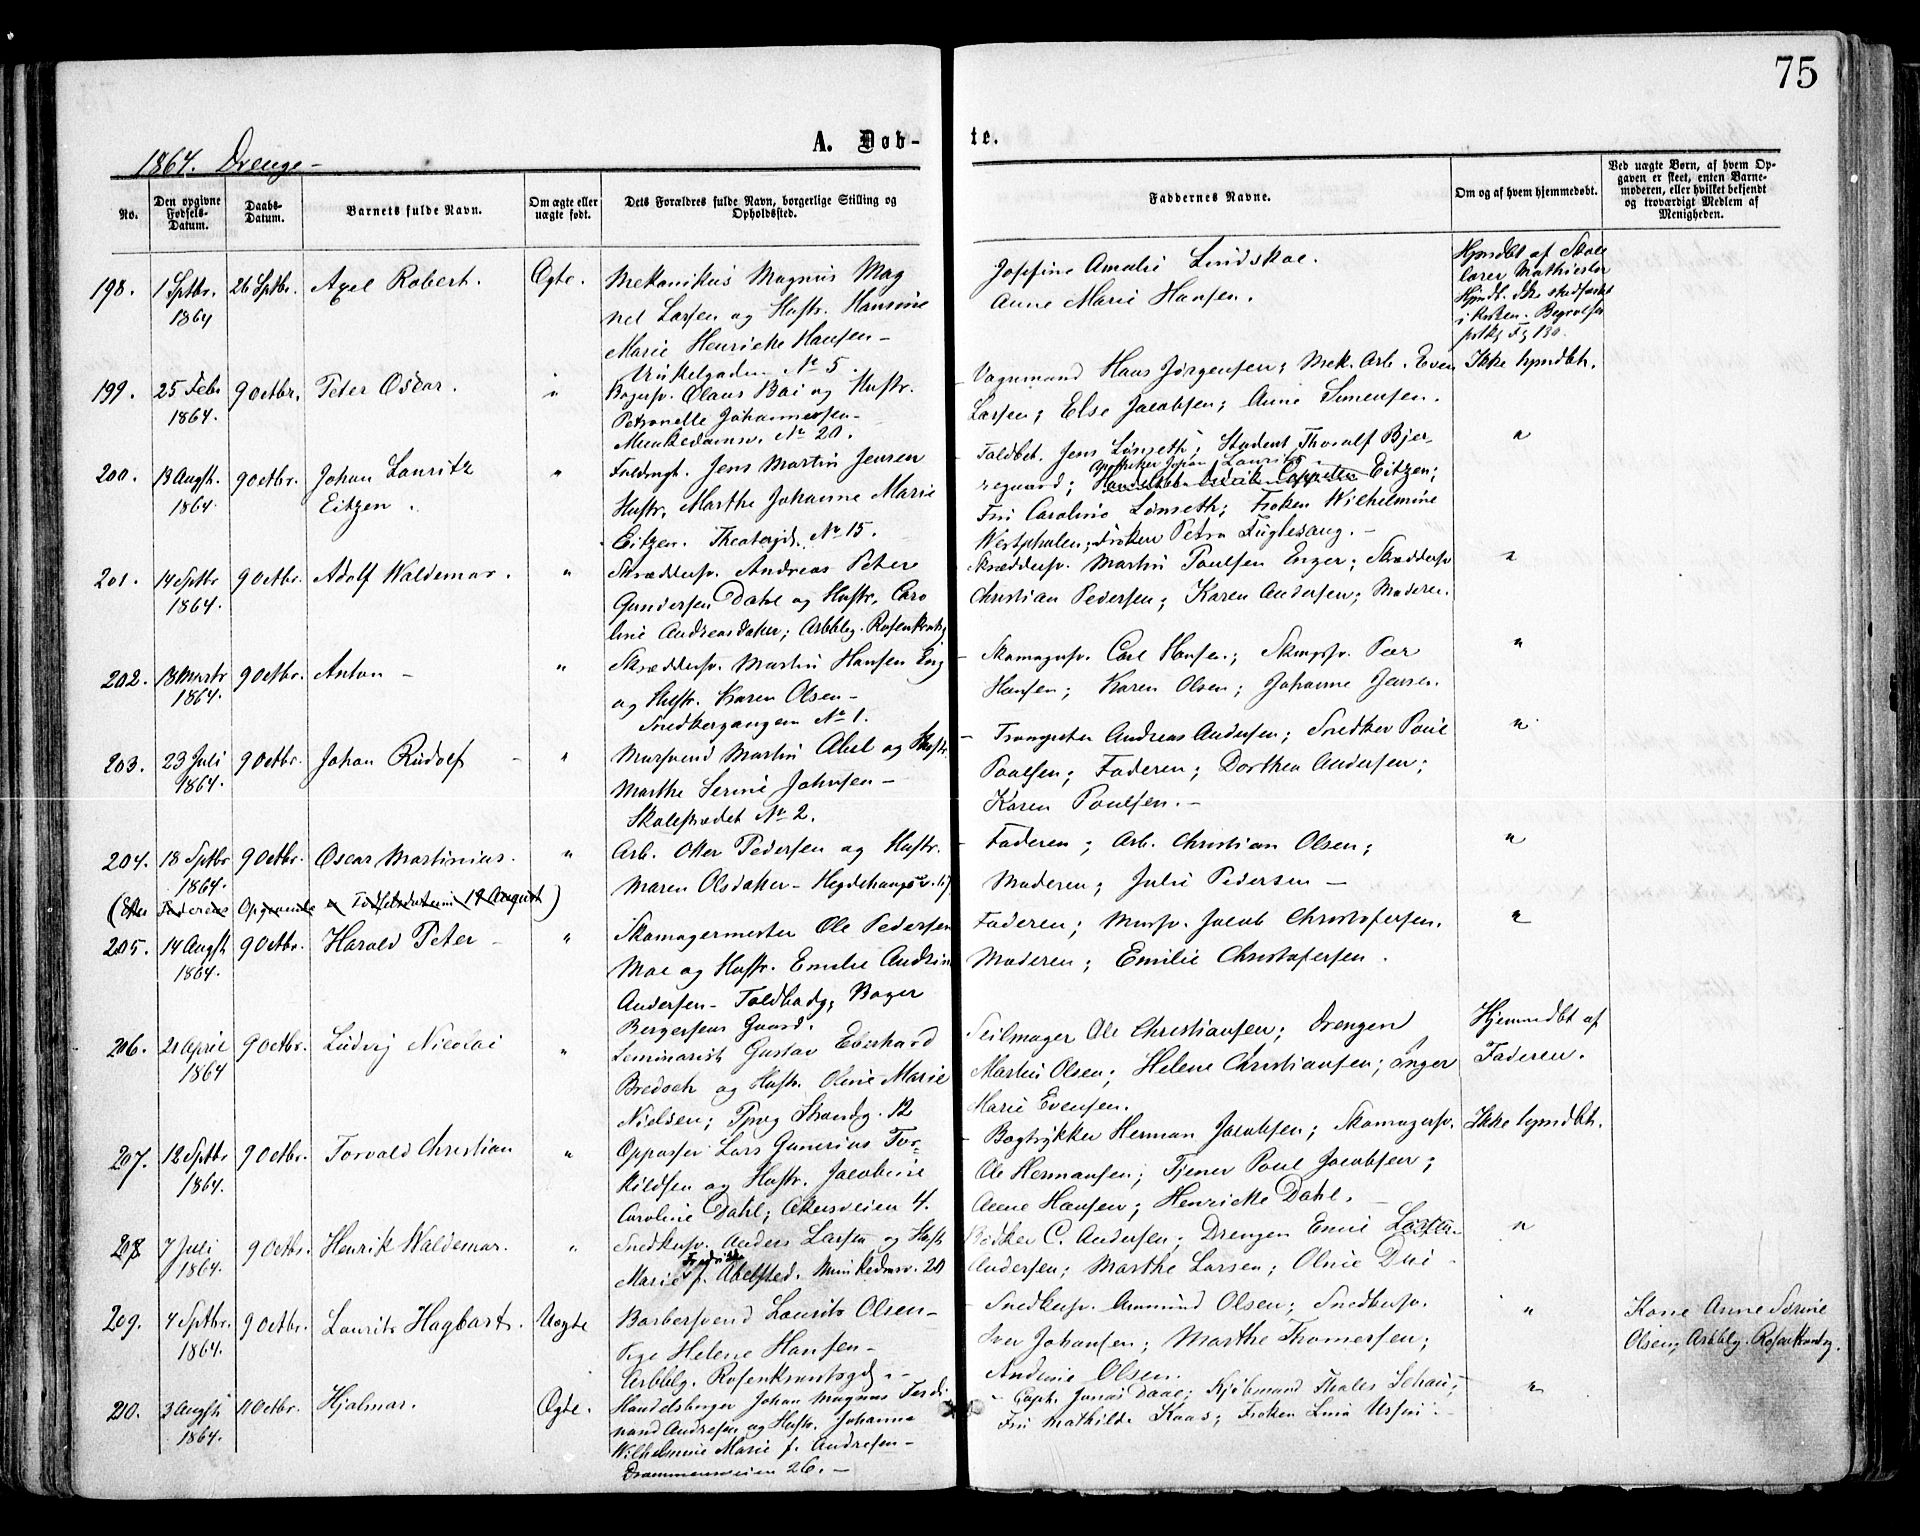 75
A. Døb-
te.
1864. Drenge -
No.
Den opgivne Fødsels-Datum.
Daabs-Datum.
Barnets fulde Navn.
Om ægte eller uægte født.
Dets Forældres fulde Navn, borgerlige Stilling og Opholdssted.
Faddernes Navne.
Om og af hvem hjemmedøbt.
Ved uægte Børn, af hvem Op-
gaven er skeet, enten Barne-
moderen, eller hvilket bekjendt
og troværdigt Medlem af
Menigheden.
198. 1 Sptbr. 1864 26 Sptbr. Axel Robert. Ægte. Mekanikus Magnus Mag
nel Larsen og Hustr. Hansine
Marie Henriette Hansen -
No 5.
Josefine Amalie Lindskoe.
Anne Marie Hansen.
Hjmdbt af Skole
lærer
199. 25 Feb. 1864. 9 Octbr. Peter Oscar. " Olaus Boi og Hustr.
Petronelle Johannesen -
Munkedamsv. No 20.
Vognmand Hans Jørgensen; Mek. Arb. Even
Larsen; Else Jacobsen; Anne Simensen.
Ikke hjmdbt.
200. 13 Augst. 1864. 9 Octbr. Johan Lauritz
Eitzen. " Fuldmgt. Jens Martin Jensen
Hustr. Marthe Johanne Marie
Eitzen. Theatergd. No 15.
Toldbet. Jens Lønseth; Student Thoralf Bjer-
regaard; Johan Laurits Eitzen;
Fru Caroline Lønseth; Frøken Wilhelmine
Westphalen; Frøken Petra Fuglesang. -
"
201. 14 Sptbr 1864. 9 Octbr. Adolf Waldemar. " Skræddersv. Andreas Peter
Gundersen Dahl og Hustr. Caro
line Andreasdatter; Arbblg. Rosenkrantzg
Skræddersv. Martin Poulsen Enger; Skræddersv
Christian Pedersen; Karen Andersen; Moderen.
"
202. 18 Marts 1864. 9 Octbr. Anton - " Skræddersv. Martin Hansen Eng
og Hustr. Karen Olsen -
Snedkergangen No 1.
Skomagersv. Carl Hansen; Skmgsv. Peer
Hansen; Karen Olsen; Johanne Jensen.
"
203. 23 Juli 1864. 9 Octbr. Johan Rudolf - " Mursvend Martin Abel og Hustr.
Marthe Serine Johnsen -
Skolestrædet No 2.
- Trompeter Andreas Andersen; Snedker Poul
Poulsen; Faderen; Dorthea Andersen;
Karen Poulsen. -
"
204. 18 Sptbr 1864. 9 Octbr. Oscar Martinius. " Arb. Otter Pedersen og Hustr.
Maren Olsdatter - Hegdehaugsv. 15
- Faderen; Arb. Christian Olsen;
Moderen; Julie Pedersen -
"
(Efter Faderens Opgivende er Fødselsdatum 19 August)
205. 14 Augst. 1864. 9 Octbr. Harald Peter - " Skomagermester Ole Pedersen
Moe og Hustr. Emilie Andrine
Andersen - Toldbodg; Bager
Bergersens Gaard.
Faderen; Mursv. Jacob Christofersen.
Moderen; Emilie Christofersen.
"
206. 21 April 1864 9 Octbr. Ludvig Nicolai " Seminarist Gustav Eberhard
Bredoch og Hustr. Oline Marie
Nielsen; Tjuvg Strandg. 12
Seilmager Ole Christiansen; Drengen
Martin Olsen; Helene Christiansen; Inger
Marie Evensen.
Hjemmedbt af
Faderen.
207. 12 Sptbr 1864. 9 Octbr. Torvald Christian " Oppasser Lars Gunerius Tor-
kildsen og Hustr. Jacobine
Caroline Dahl; Akersveien 4.
- Bogtrykker Herman Jacobsen; Skomagersv.
Ole Hermansen; Tjener Poul Jacobsen;
Anne Hansen; Henriette Dahl. -
Ikke hjmdbt.
208 7 Juli 1864. 9 Octbr. Henrik Waldemar. " Snedkersv. Anders Larsen og Hustr
Marie Fredrikke f. Abelsted. Munkedmsv. 20
Bødker C. Andersen; Drengen Emil Larsen
Andersen; Marthe Larsen; Oline Dui -
"
209. 4 Sptbr. 1864. 9 Octbr. Laurits Hagbart. Uægte Barbersvend Laurits Olsen -
Pige Helene Hansen -
Arbblg. Rosenkrantsgd. -
- Snedkersv. Ammund Olsen; Snedkersv.
Iver Johansen; Marthe Thomesen;
Andrine Olsen.
"
Kone Anne Serine
Olsen, Arbblg. Rosenkrantzg.
210. 3 Augst 1864. 11 Octbr. Hjalmar. Ægte. Handelsborger Johan Magnus Ferdi
nand Andresen og Hustr. Johanne
Wilhelmine Marie f. Andresen -
Drammensveien 26. -
- Capt. Jonas Daae; Kjøbmand Thales Schau;
Fru Mathilde Kaas; Frøken Lina Ursin. -
"